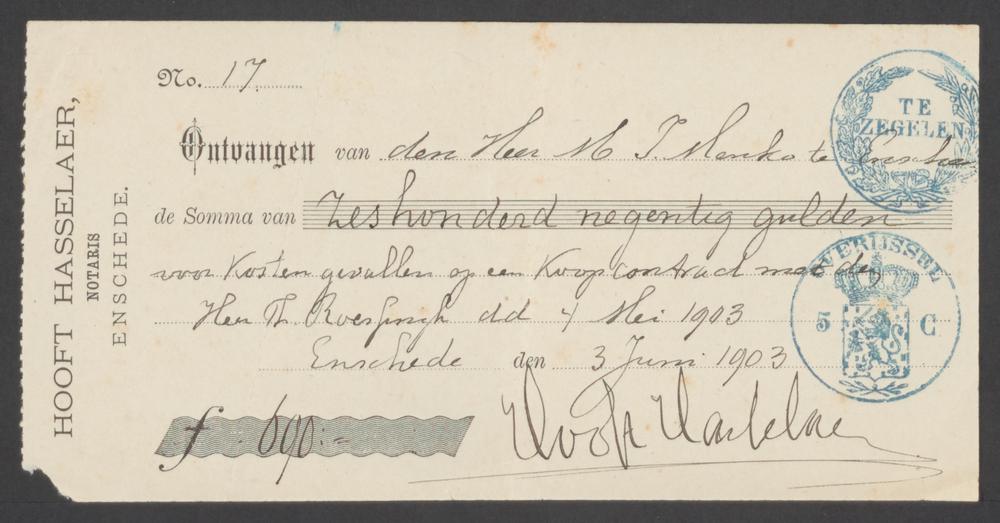 HOOFT HASSELAER,
NOTARIS
ENSCHEDE.
No. 17.
Ontvangen van den Heer M J. Menko te Ensche
de Somma van Zeshonderd negentig gulden
voor Kosten gevallen op een Koopcontract met den
Heer Th dd 4 Mei 1903
Enschede den 3 Juni 1903
f. 690.=
Hooft Hasselaer
TE
ZEGELEN
OVERIJSSEL
5 C